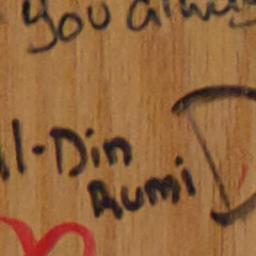 you always
l-Din
Rumi
D